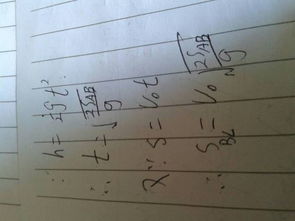 ∵ h = ½gt²
∴ t = √(2S_AB/g)
又∵ S = V₀t
∴ S_BC = V₀√(2S_AB/g)